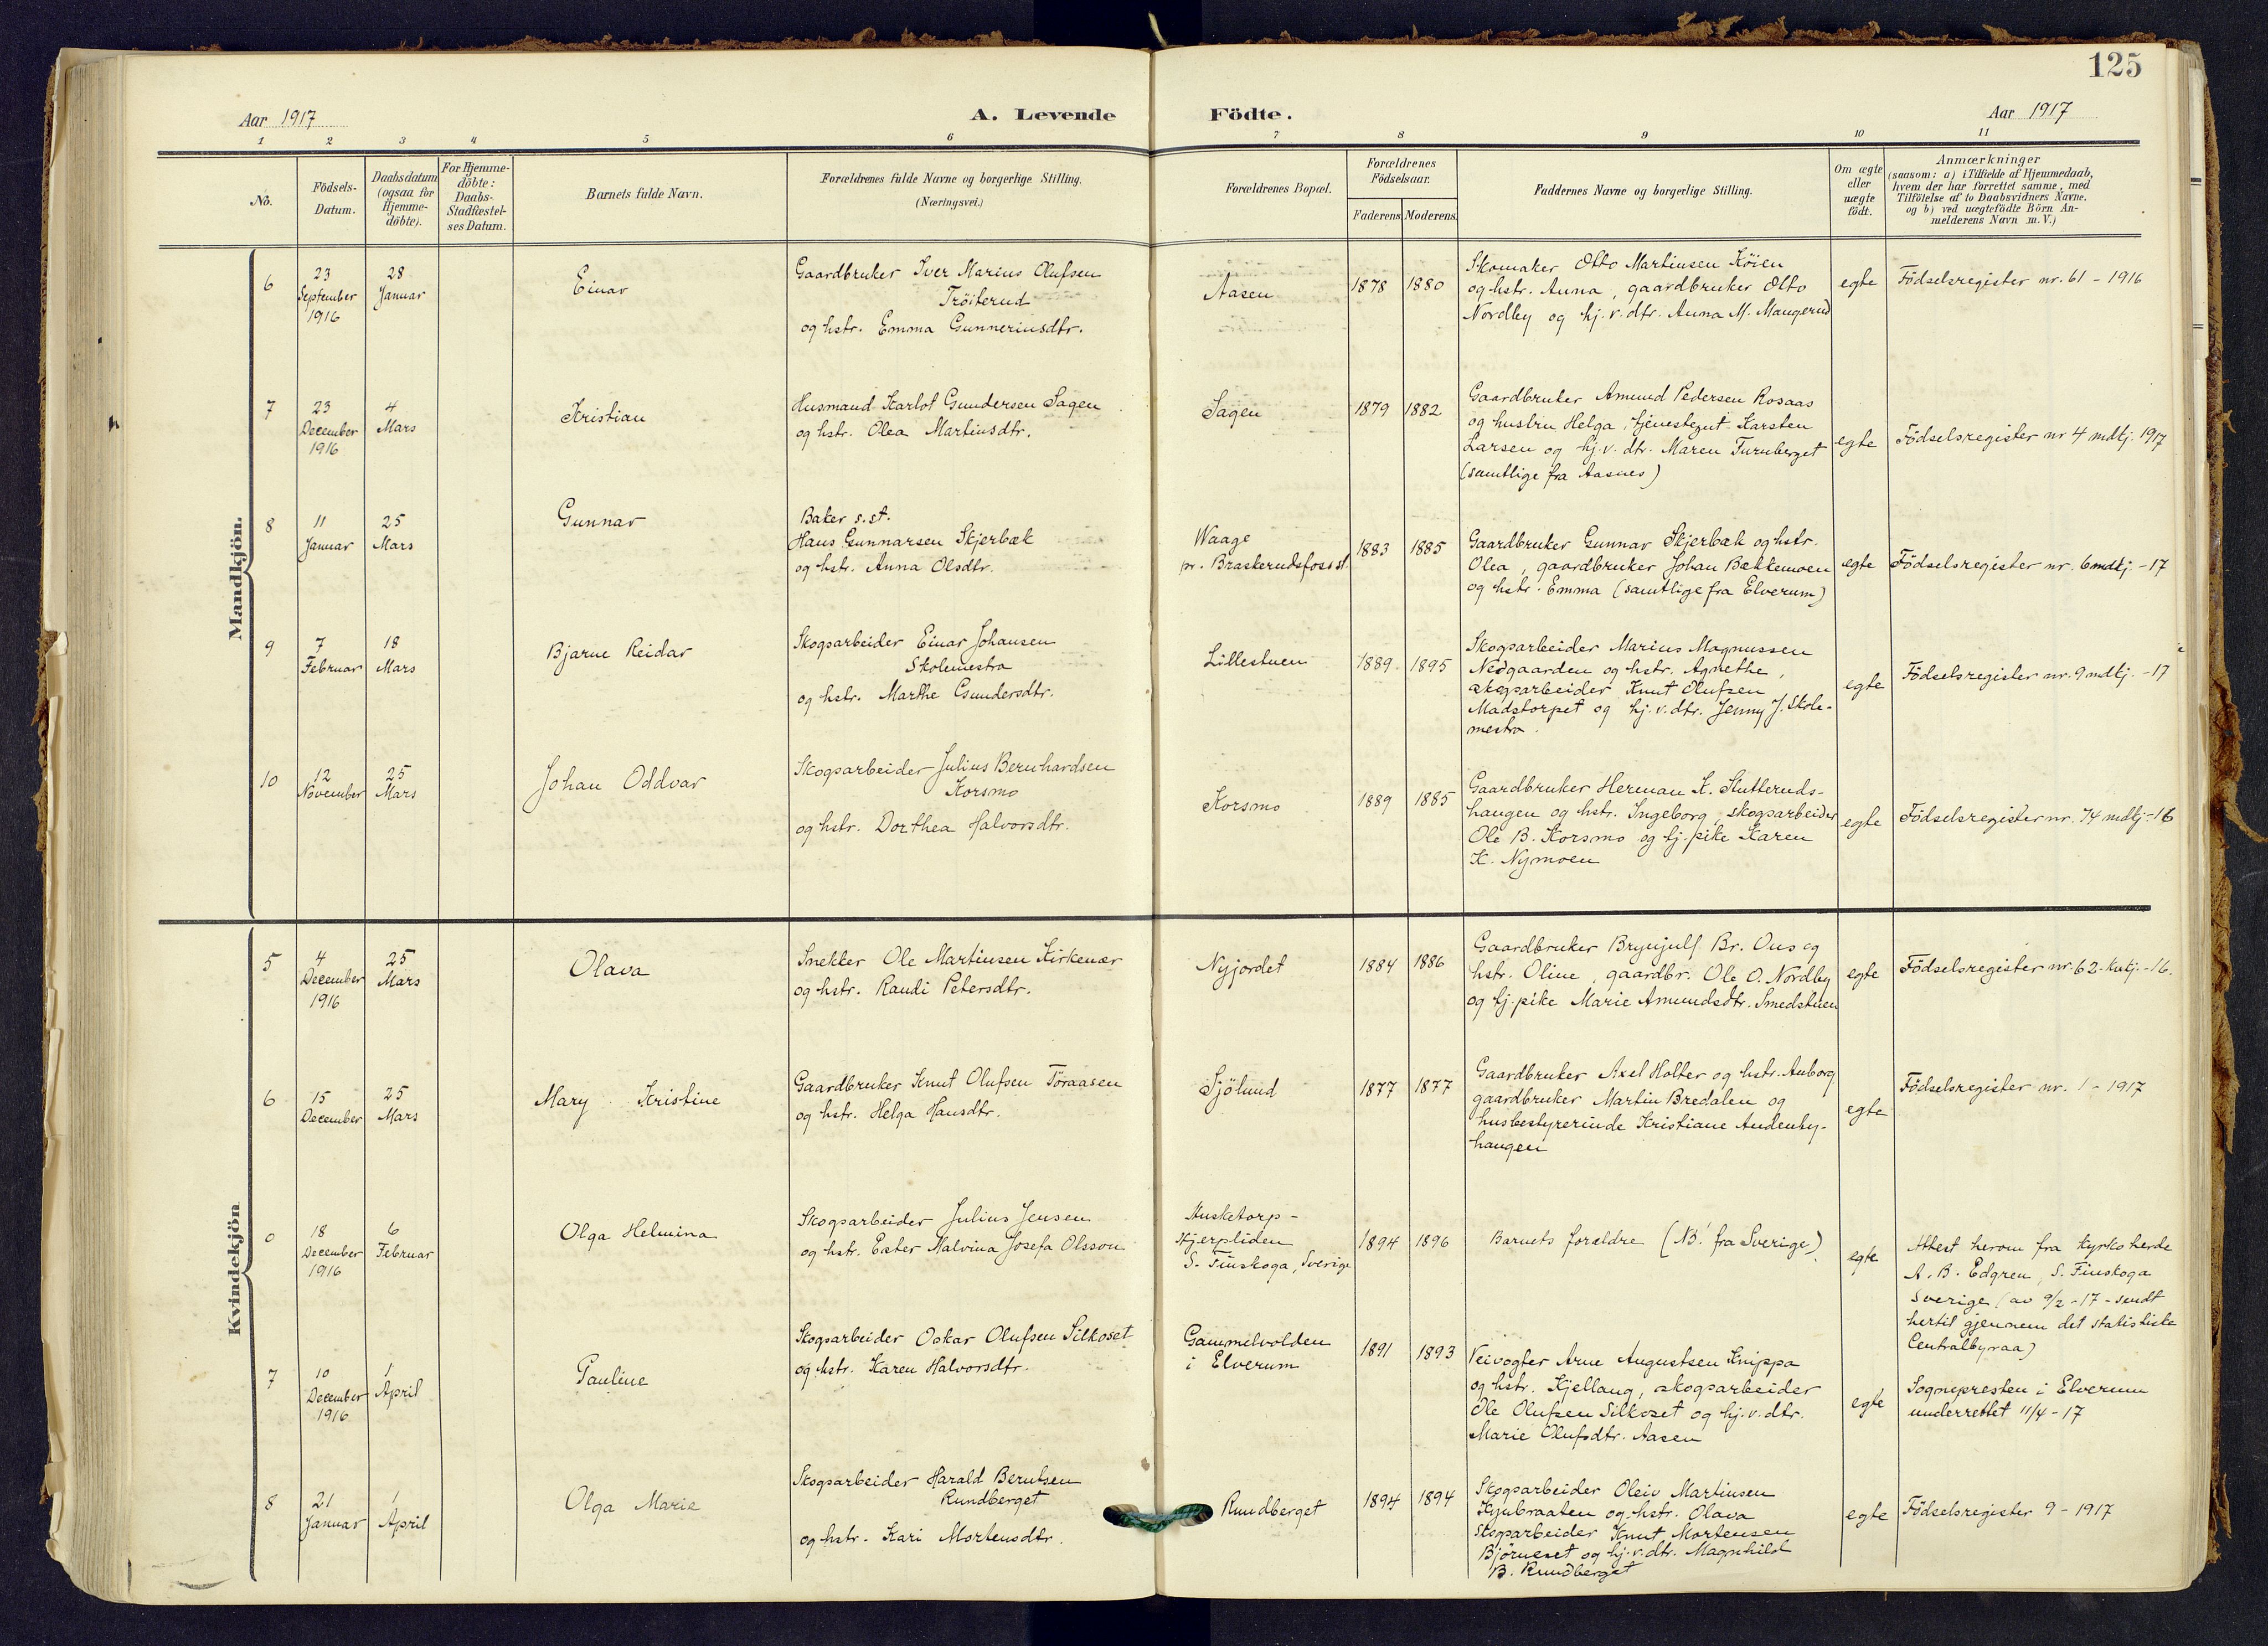 125
Aar 1917
A. Levende Födte.
Aar 1917
1 2 3 4 5 6 7 8 9 10 11
No.
Födsels-
Datum.
Daabsdatum
(ogsaa for
Hjemme-
döbte).
For Hjemme-
döbte:
Daabs-
Stadfæstel-
ses Datum.
Barnets fulde Navn.
Forældrenes fulde Navne og borgerlige Stilling.
(Næringsvei.)
Forældrenes Bopæl.
Forældrenes
Födselsaar.
Faderens. Moderens.
Faddernes Navne og borgerlige Stilling.
Om ægte
eller
uægte
födt.
Anmærkninger
(saasom: a) i Tilfælde af Hjemmedaab,
hvem der har forrettet samme, med
Tilföielse af to Daabsvidners Navne.
og b) ved uægtefödte Börn An-
melderens Navn m. V.)
Mandkjön.
6
23
September
1916
28
Januar
Einar
Gaardbruker Iver Marius Olufsen
Tröiterud
og hstr. Emma Gunneriusdtr.
Aasen
1878
1880
Skomaker Otto Martinsen Köien
og hstr. Anna, gaardbruker Otto
Nordby og hj. v. dtr. Anna M. Maugerud
egte
Födselsregister nr. 61 - 1916
7
23
December
1916
4
Mars
Kristian
Husmand Karlot Gundersen Sagen
og hstr. Olea Martinsdtr.
Sagen
1879
1882
Gaardbruker Amund Pedersen Rosaas
og hustru Helga, tjenestegut Karsten
Larsen og hj. v. dtr. Maren Furuberget
(samtlige fra Aasnes)
egte
Födselsregister nr 4 mdkj. 1917
8
11
Januar
25
Mars
Gunnar
Baker s.st.
Hans Gunnarsen Skjerbæk
og hstr. Anna Olsdtr.
Waage
pr. Braskerudsfoss st.
1883
1885
Gaardbruker Gunnar Skjerbæk og hstr.
Olea, gaardbruker Johan Bækkemoen
og hstr. Emma (samtlige fra Elverum)
egte
Födselsregister nr. 6 mdkj. - 17
9
7
Februar
18
Mars
Bjarne Reidar
Skogsarbeider Einar Johansen
Skolemestra
og hstr. Marthe Gundersdtr.
Lillestuen
1889
1895
Skogsarbeider Marius Magnussen
Nedgaarden og hstr. Agnethe,
skogsarbeider Knut Olufsen
Madstorpet og hj. v. dtr. Jenny J. Skole-
mestra.
egte
Födselsregister nr. 9 mdkj. - 17
10
12
November
25
Mars
Johan Oddvar
Skogsarbeider Julius Bernhardsen
Korsmo
og hstr. Dorthea Halvorsdtr.
Korsmo
1889
1885
Gaardbruker Herman K. Slutteruds-
haugen og hstr. Ingeborg, skogsarbeider
Ole B. Korsmo og tj. pike Karen
K. Nymoen
egte
Födselsregister nr. 74 mdkj - 16
Kvindekjön
5
4
December
1916
25
Mars
Olava
Snekker Ole Martinsen Kirkenær
og hstr. Randi Petersdtr.
Nyjordet
1884
1886
Gaardbruker Brynjulf Br. Ous og
hstr. Oline, gaardbr. Ole O. Nordby
og tj. pike Marie Amundsdtr. Smedstuen
egte
Födselsregister nr. 62 - kvkj. - 16.
6
15
December
25
Mars
Mary Kristine
Gaardbruker Knut Olufsen Töraasen
og hstr. Helga Hansdtr.
Sjölund
1877
1877
Gaardbruker Axel Holter og hstr. Anborg
gaardbruker Martin Bredalen og
husbestyrerinde Kristiane Audenby-
haugen
egte
Födselsregister nr. 1 - 1917
0
18
December
1916
6
Februar
Olga Helmina
Skogsarbeider Julius Jensen
og hstr. Ester Malvina Josefa Olsson
Husketorp -
Hjerpliden
S. Finskoga, Sverige
1894
1896
Barnets forældre (NB! fra Sverige)
egte
Attest herom fra kyrkoherde
A. B. Edgren, S. Finskoga
Sverige (av 9/2 - 17 - sendt
hertil gjennem det statistiske
Centralbyraa)
7
10
December
1916
1
April
Pauline
Skogsarbeider Oskar Olufsen Silkoset
og hstr. Karen Halvorsdtr.
Gammelvolden
i Elverum
1891
1893
Veivogter Arne Augustsen Knippa
og hstr. Kjellaug, skogsarbeider
Ole Olufsen Silkoset og hj. v. dtr.
Marie Olufsdtr. Aasen
egte
Sognepresten i Elverum
underrettet 11/4 - 17
8
21
Januar
1
April
Olga Marie
Skogsarbeider Harald Berntsen
Rundberget
og hstr. Kari Mortensdtr.
Rundberget
1894
1894
Skogsarbeider Oleiv Martinsen
Kjubraaten og hstr. Olava
skogsarbeider Knut Mortensen
Björneset og hj. v. dtr. Magnhild
B. Rundberget
egte
Födselsregister 9 - 1917